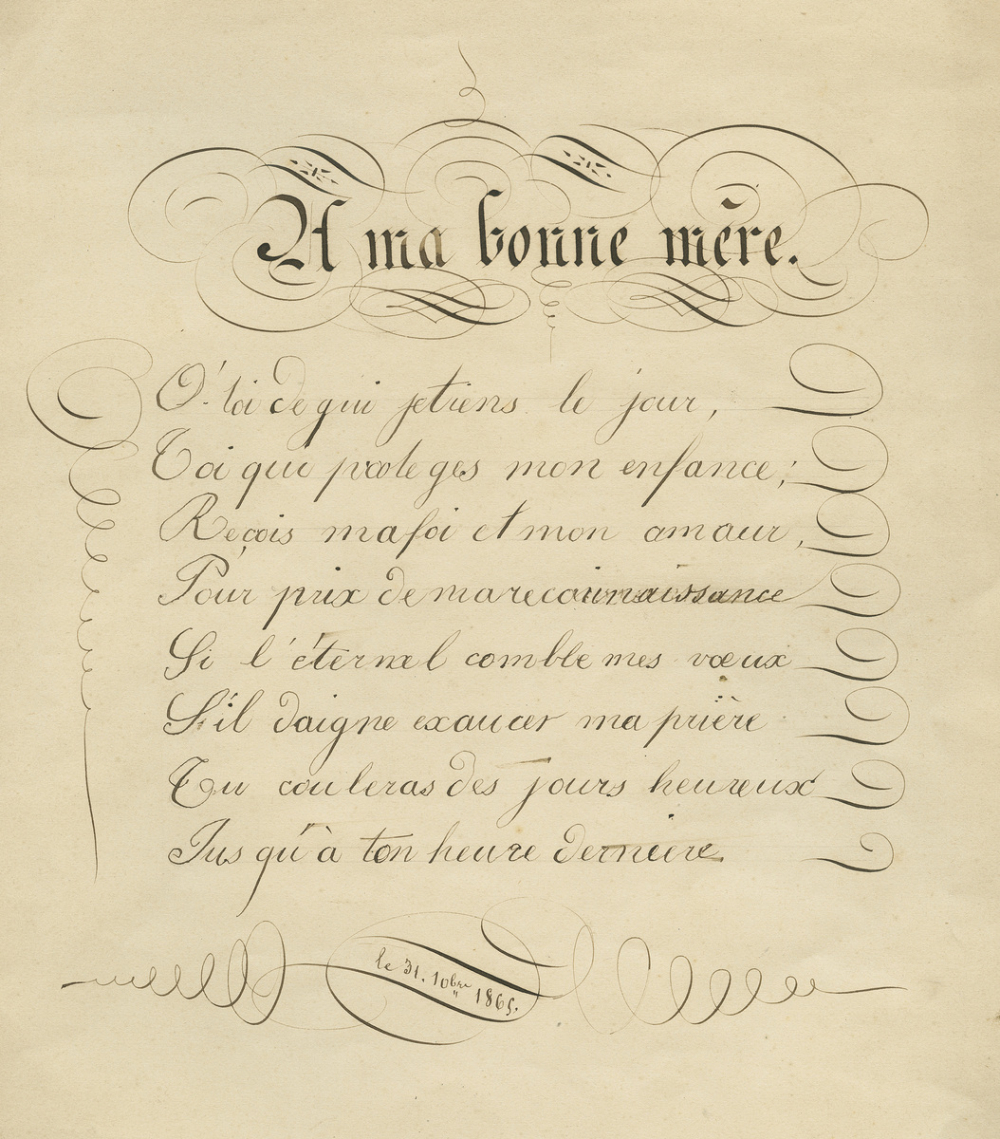 A ma bonne mère.
O' toi de qui je tiens le jour,
Toi qui proteges mon enfance;
Reçois ma foi et mon amour,
Pour prix de ma reconnaissance
Si l'éternel comble mes vœux
S'il daigne exaucer ma prière
Tu couleras des jours heureux
Jusqu'à ton heure derniere.
le 31. 10bre 1865.